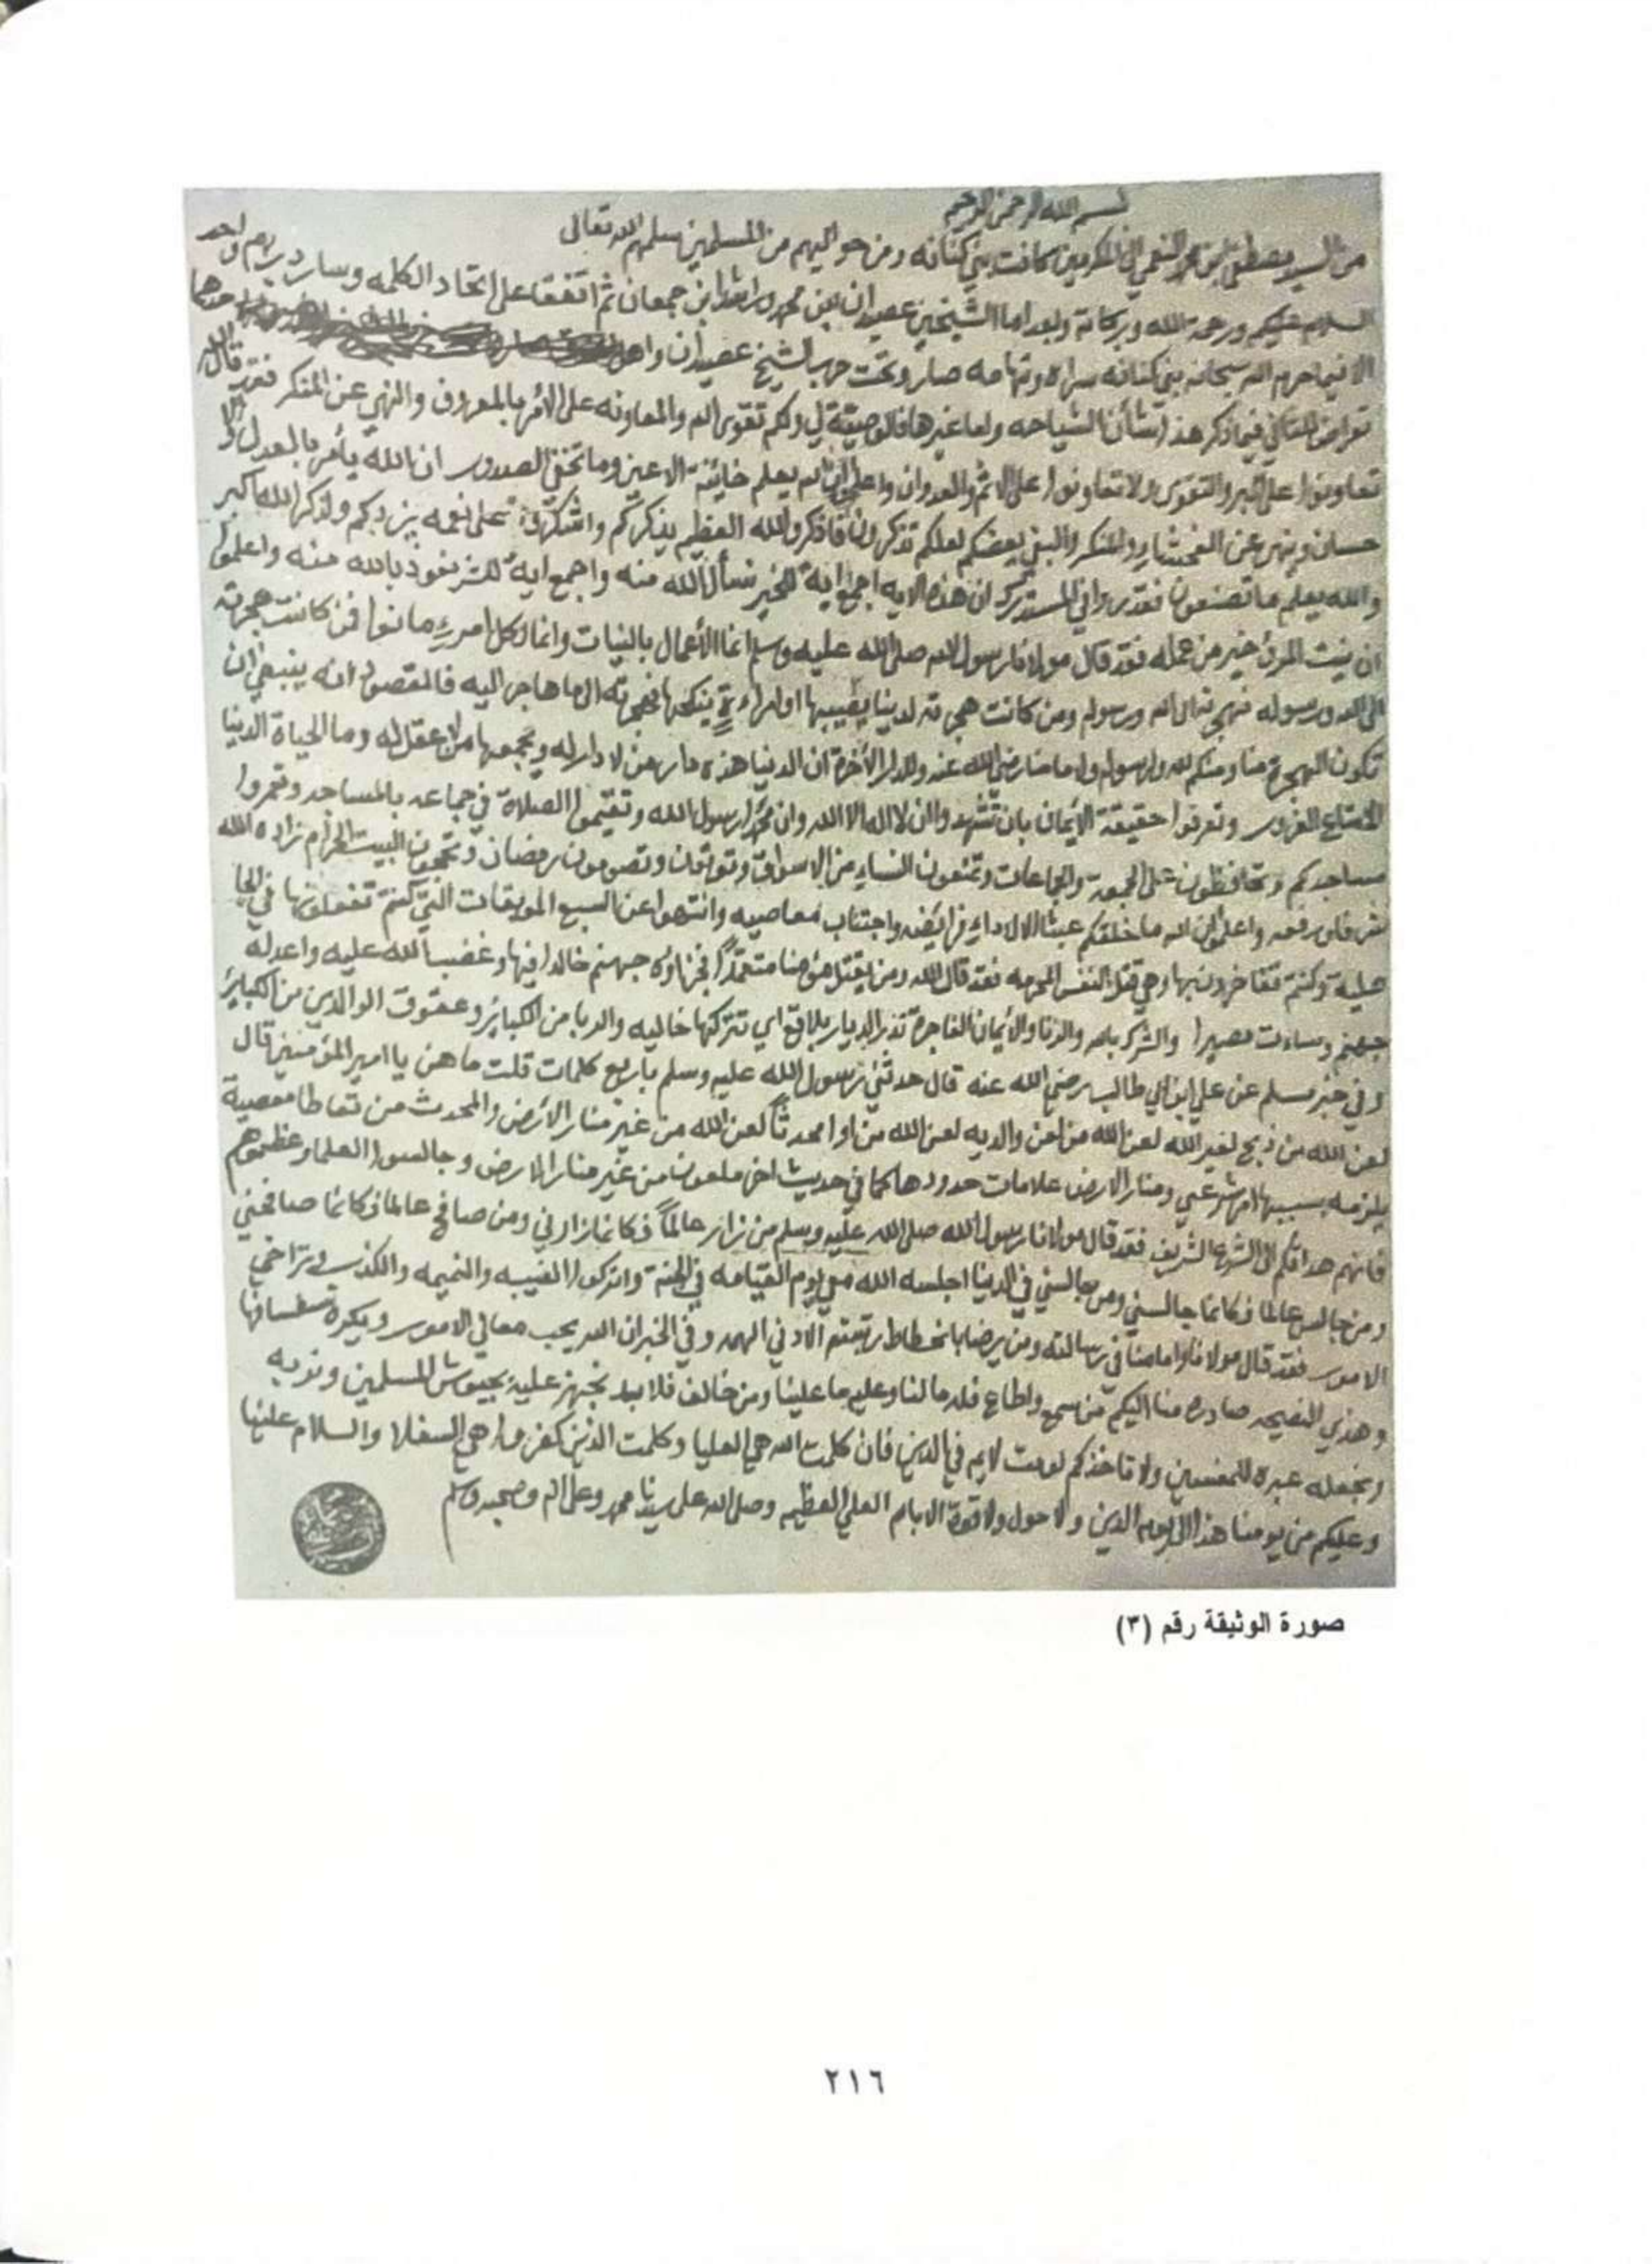 بسم الله الرحمن الرحيم
من السيد مصطفى بن محمد النعمي الى المكرمين كافت بني كنانه ومن حواليهم من المسلمين سلمهم الله تعالى
السلام عليكم ورحمة الله وبركاته وبعد اما الشيخين عصيدان بن محمد وراشد ابن جمعان ثم اتفقا على اتحاد الكلمه وسار دربهم واحد
الا فيما حرم الله سبحانه بني كنانه سراه وتهامه صارو تحت حرب الشيخ عصيدان واهل
فيما ذكر هذا بشأن الشياحه واما غيرها فالوصية لي ولكم تقوى الله والمعاونه على الأمر بالمعروف والنهي عن المنكر فقد قال الله
تعاونوا على البر والتقوى ولا تعاونوا على الاثم والعدوان واعلموا ان الله يعلم خائنة الاعين وما تخفي الصدور ان الله يأمر بالعدل والا
حسان وينهى عن الفحشاء والمنكر والبغي يعضكم لعلكم تذكرون فاذكرو الله العظيم يذكركم واشكروه على نعمه يزدكم ولذكر الله اكبر
والله يعلم ما تصنعون فقد روا في المستدرك ان هذه الايه اجمع اية للخير نسأل الله منه واجمع اية للشر نعوذ بالله منه واعلموا
ان نيت المرؤ خير من عمله فقد قال مولانا رسول الله صلى الله عليه وسلم انما الأعمال بالنيات وانما لكل امرءٍ ما نوا فمن كانت هجرته
الى الله ورسوله فهجرته الى الله ورسوله ومن كانت هجرته لدينا يصيبها او امراءة ينكحها فهجرته الى ما هاجر اليه فالمقصود انه ينبغي ان
تكون الهجرة منا ومنكم لله ولرسوله ولامامنا رضي الله عنه وللدار الآخرة ان الدنيا هذه دار من لا دار له ويجمعها من لا عقل له وما الحياة الدنيا
الا متاع الغرور وتعرفوا حقيقة الايمان بان تشهدو الان لا اله الا الله وان محمدا رسول الله وتقيموا الصلاة في جماعه بالمساجد وتعمروا
مساجدكم وتحافظون على الجمعة والجماعات وتمنعون النساء من الاسواق وتؤتون وتصومون رمضان وتحجون البيت الحرام زاده الله
شرفا ورفعه واعلموا ان الله ما خلقكم عبثا الا لاداء فرايضه واجتناب معاصيه وانتهوا عن السبع الموبقات التي كنتم تفعلونها في الجا
هلية وكنتم تفاخرون بها وهي قتل النفس المحرمه فقد قال الله ومن يقتل مؤمنا متعمدًا فجزاؤه جهنم خالدا فيها وغضب الله عليه واعد له
جهنم وساءت مصيرا والشرك بالله والزنا والأيمان الفاجرة تذر الديار بلاقع اي تتركها خاليه والربا من الكبائر وعقوق الوالدين من الكبائر
وفي خبر مسلم عن علي ابن ابي طالب رضي الله عنه قال حدثني رسول الله عليه وسلم بأربع كلمات قلت ما هن يا امير المؤمنين قال
لعن الله من ذبح لغير الله لعن الله من لعن والديه لعن الله من اوا محدثاً لعن الله من غير منار الارض والمحدث من تعاطا معصية
يلزمه بسببها امر شرعي ومنار الارض علامات حدودها كما في حديث اخر ملعون من غير منار الارض وجالسوا العلماء وعظموهم
فانهم هداتكم الى الشرع الشريف فقد قال مولانا رسول الله صلى الله عليه وسلم من زار عالماً فكانما زارني ومن صافح عالما فكانما صافحني
ومن جالس عالما فكانما جالسني ومن جالسني في الدينا اجلسه الله معي يوم القيامه في الجنة واتركوا الغيبه والنميمه والكذب وتراخي
الامور فقد قال مولانا وامامنا في رسالته ومن يرضا بانحطاط رتبته الا دني الهمه وفي الخبر ان الله يحب معالي الامور ويكره سفسافها
وهذي النصيحه صادره منا اليكم فمن سمع واطاع فله ما لنا وعليه ما علينا ومن خالف فلا بد نجهز عليه بجيوش المسلمين ونؤدبه
ونجعله عبره للمفسدين ولا تاخذكم لومت لايم في الدين فان كلمت الله هي العليا وكلمت الذين كفرو هي السفلا والسلام علينا
وعليكم من يومنا هذا الى يوم الدين ولا حول ولا قوة الا بالله العلي العظيم وصلى الله على سيدنا محمد وعلى اله وصحبه وسلم
صورة الوثيقة رقم (٣)
٢١٦